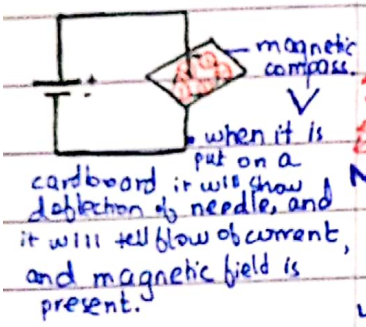 magnetic
compass.
+
-
when it is
put on a
cardboard it will show
deflection of needle, and
it will tell flow of current,
and magnetic field is
present.